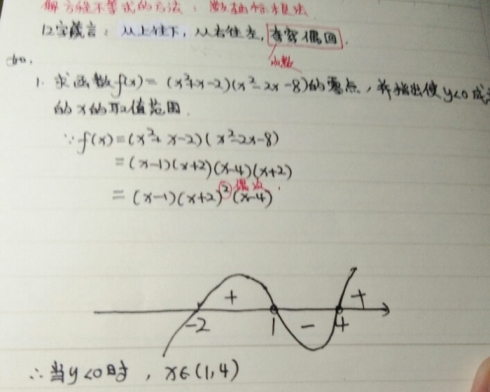 解方程不等式的方法:数轴标根法
12字箴言:从上往下,从右往左,奇穿偶回.
次数
如.
1. 求函数f(x)=(x²+x-2)(x²-2x-8)的零点,并指出使y<0成立
的x的取值范围.
∵f(x)=(x²+x-2)(x²-2x-8)
=(x-1)(x+2)(x-4)(x+2)
=(x-1)(x+2)²(x-4)
+ - +
-2 1 4
∴当y<0时,x∈(1,4)